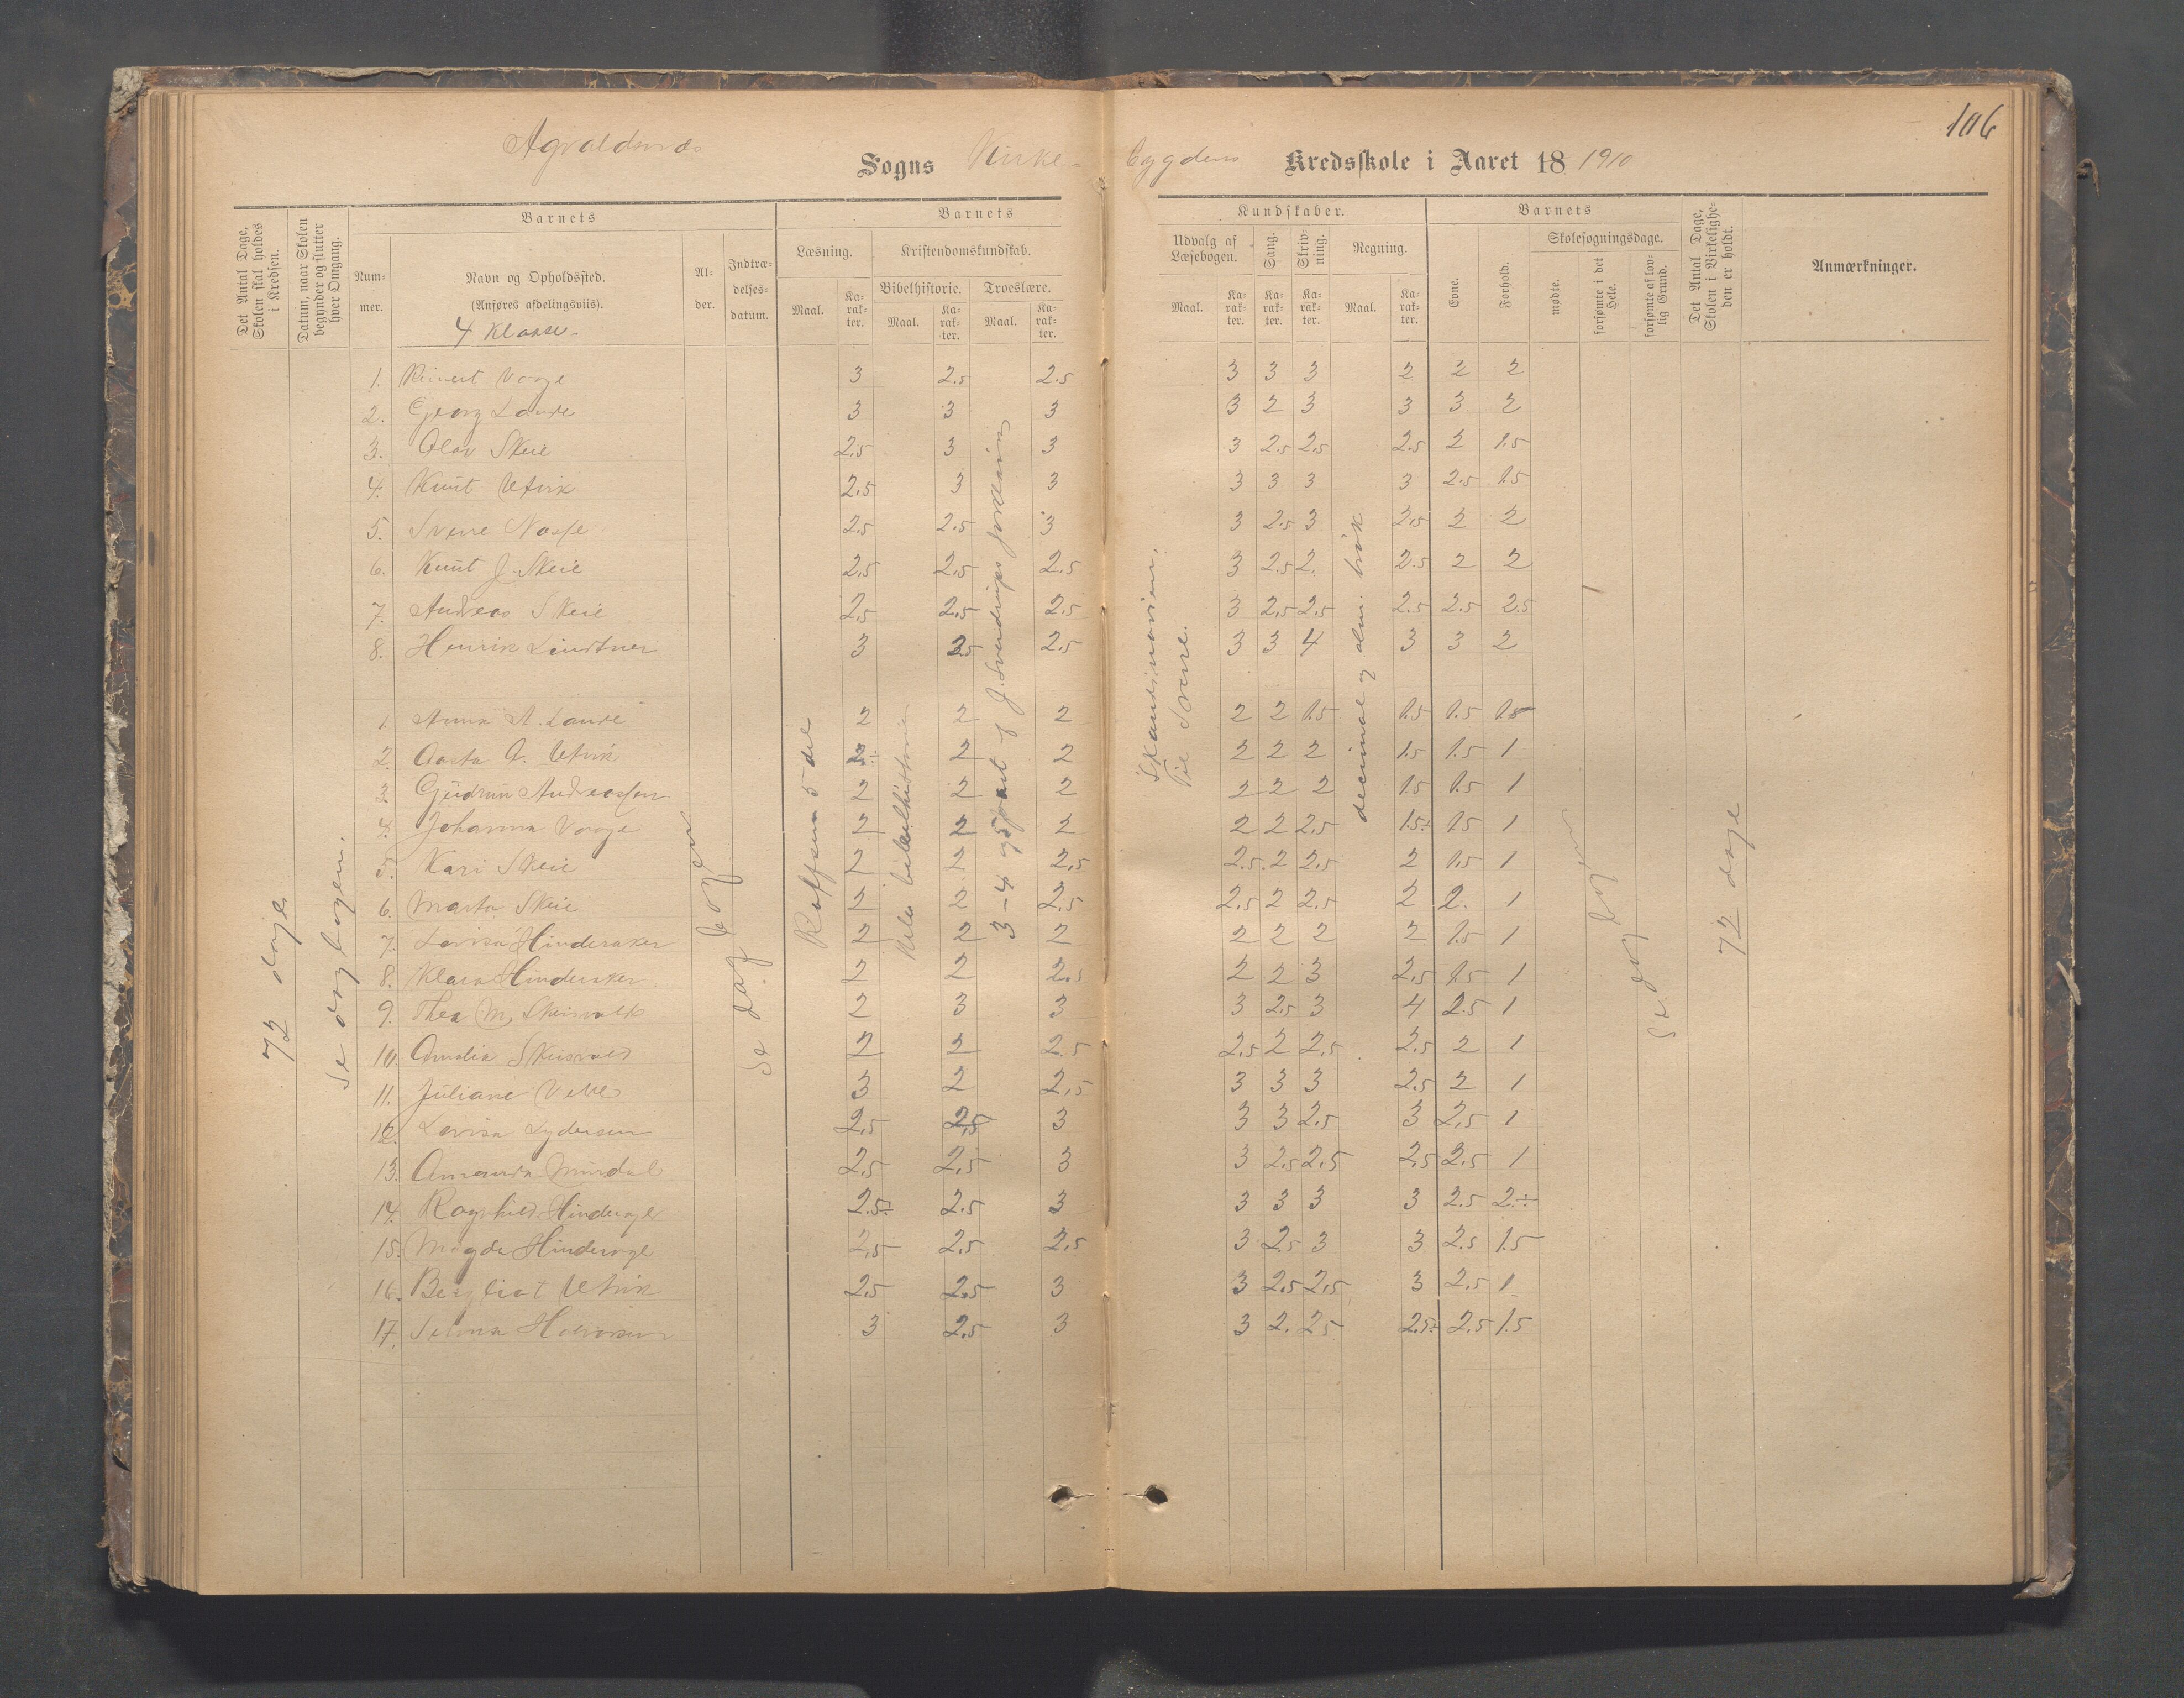 106
Agvaldsnæs Sogns Kirke- bygdens Kredsskole i Aaret 18 1910
Det Antal Dage, Skolen skal holdes i Kredsen.
Datum, naar Skolen begynder og slutter hver Omgang.
Barnets
Nummer.
Navn og Opholdssted.
(Anføres afdelingsviis).
4 Klasse.
Alder.
Indtrædelsesdatum.
Barnets
Læsning.
Maal.
Karakter.
Kristendomskundskab.
Bibelhistorie.
Maal.
Karakter.
Troeslære.
Maal.
Karakter.
Kundskaber.
Udvalg af Læsebogen.
Maal.
Karakter.
Sang.
Karakter.
Skrivning.
Karakter.
Regning.
Maal.
Karakter.
Barnets
Evne.
Forhold.
Skolesøgningsdage.
mødte.
forsømte i det Hele.
forsømte af lovlig Grund.
Det Antal Dage, Skolen i Virkeligheden er holdt.
Anmærkninger.
72 dage
Se dagbogen.
Se dagbogen
Rolfsens 5 del
Hele bibelhistorien
3-4 og 5 part af J. Sverdrups forklaring
Skandinavien.
Til Sverre.
decimal og alm. brøk
Se dagbogen
72 dage
1. Reinert Vorge 3 2.5 2.5 3 3 3 2 2 2
2. Georg Lande 3 3 3 3 2 3 3 3 2
3. Olav Skeie 2.5 3 3 3 2.5 2.5 2.5 2 1.5
4. Knut Utvik 2.5 3 3 3 3 3 3 2.5 1.5
5. Sverre 2.5 2.5 3 3 2.5 3 2.5 2 2
6. Knut J. Skeie 2.5 2.5 2.5 3 2.5 2. 2.5 2 2
7. Andreas Skeie 2.5 2.5 2.5 3 2.5 2.5 2.5 2.5 2.5
8. Henrik Lindtner 3 2.5 2.5 3 3 4 3 3 2
1. Anna A. Lande 2 2 2 2 2 1.5 1.5 1.5 1.5
2. Aasta G. Utvik 2÷ 2 2 2 2 2 1.5 1.5 1
3. Gudrun Andreassen 2 2 2 2 2 2 1.5 1.5 1
4. Johanna Vorge 2 2 2 2 2 2.5 1.5÷ 1.5 1
5. Kari Skeie 2 2 2.5 2.5 2 2.5 2 1.5 1
6. Marta Skeie 2 2 2.5 2.5 2 2.5 2 2. 1
7. Lovisa Hinderaker 2 2 2 2 2 2 2 1.5 1
8. Klara Hinderaker 2 2 2.5 2 2 3 2.5 1.5 1
9. Thea M. Skeisvoll 2 3 3 3 2.5 3 4 2.5 1
10. Amalia Skeisvold 2 2 2.5 2.5 2 2.5 2.5 2 1
11. Juliane 3 2 2.5 3 3 3 2.5 2 1
12. Lovisa Lydersen 2.5 2.5 3 3 3 2.5 3 2.5 1
13. Amanda Mürdal 2.5 2.5 3 3 2.5 2.5 2.5 2.5 1
14. Ragnhild 2.5÷ 2.5 3 3 3 3 3 2.5 2÷
15. Magda 2.5 2.5 2.5 3 2.5 3 3 2.5 1.5
16. Bergliot Utvik 2.5 2.5 3 3 2.5 2.5 3 2.5 1
17. Selma Halvorsen 3 2.5 3 3 2. 2.5 2.5÷ 2.5 1.5